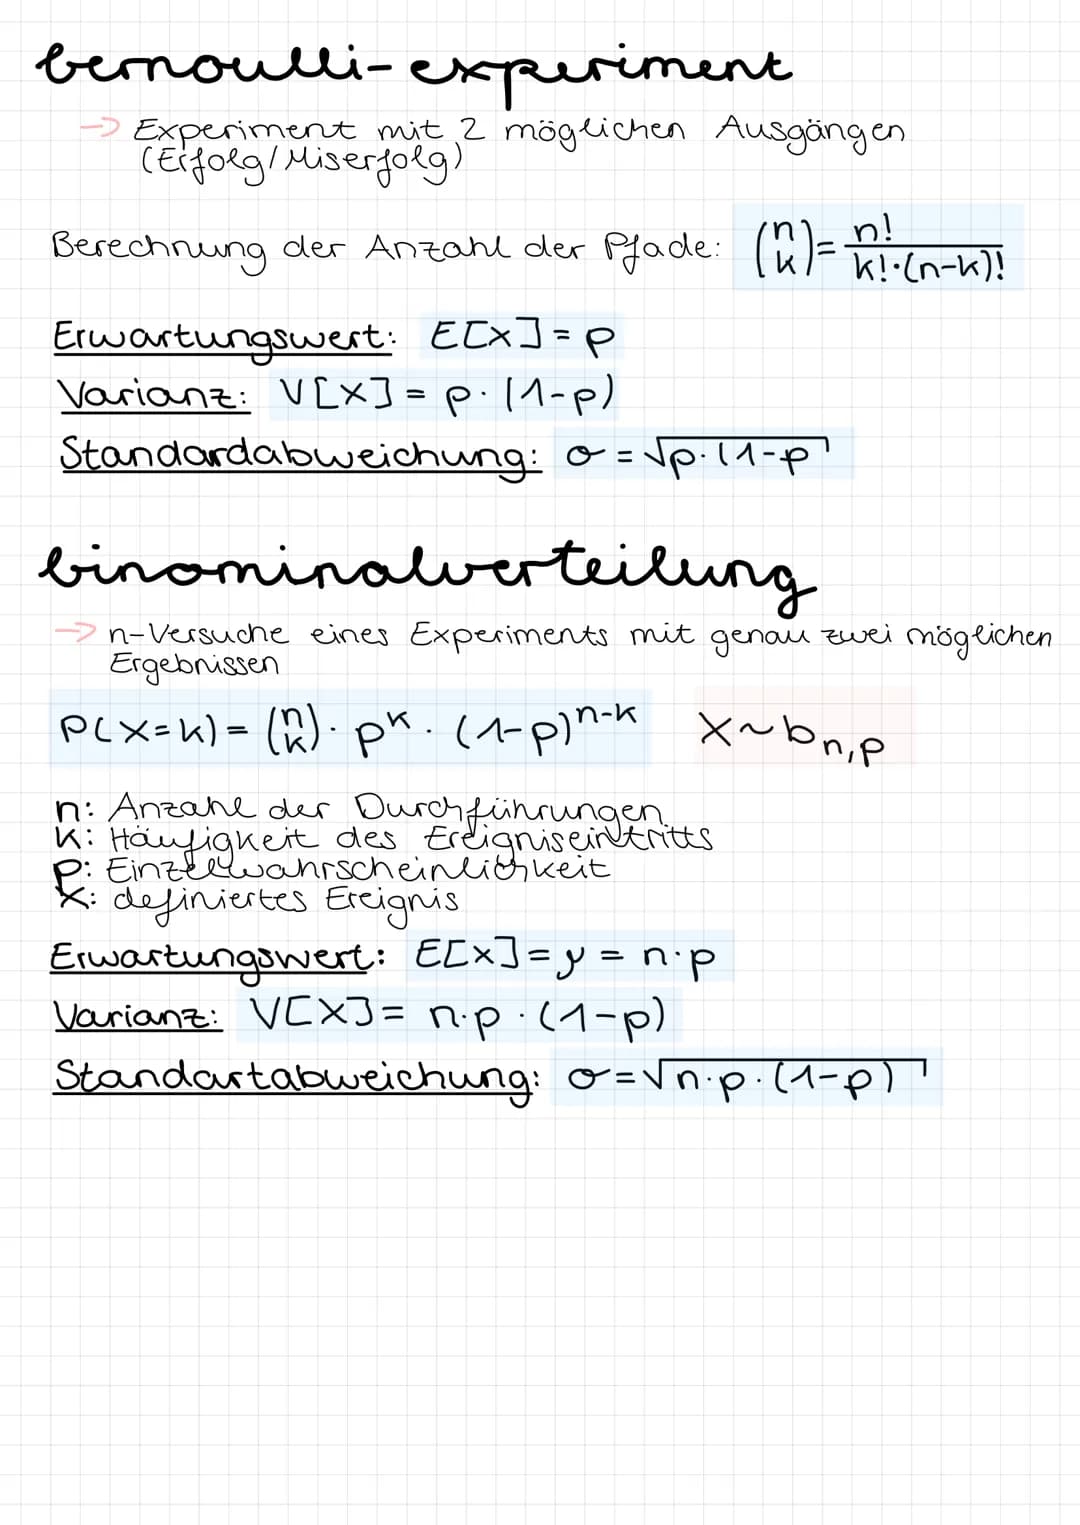 bernoulli-experiment
→ Experiment mit 2 möglichen Ausgängen
(Erfolg/Miserfolg)
Berechnung der Anzahl der Pfade: (n k) = n! / k!·(n-k)!
Erwartungswert: E[X] = p
Varianz: V[X] = p·(1-p)
Standardabweichung: σ = √p·(1-p
binominalverteilung
→ n-Versuche eines Experiments mit genau zwei möglichen
Ergebnissen
P(X=k) = (n k) · p^k · (1-p)^n-k X~b n,p
n: Anzahl der Durchführungen
k: Häufigkeit des Ereigniseintritts
p: Einzelwahrscheinlichkeit
X: definiertes Ereignis
Erwartungswert: E[X] = μ = n·p
Varianz: V[X] = n·p·(1-p)
Standartabweichung: σ = √n·p·(1-p)